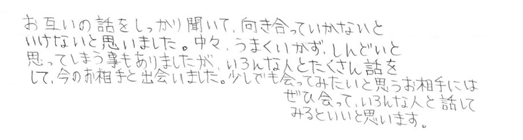 お互いの話をしっかり聞いて、向き合っていかないと
いけないと思いました。中々、うまくいかず、しんどいと
思ってしまう事もありましたが、いろんな人とたくさん話を
して、今のお相手と出会いました。少しでも会ってみたいと思うお相手には
ぜひ会って、いろんな人と話して
みるといいと思います。